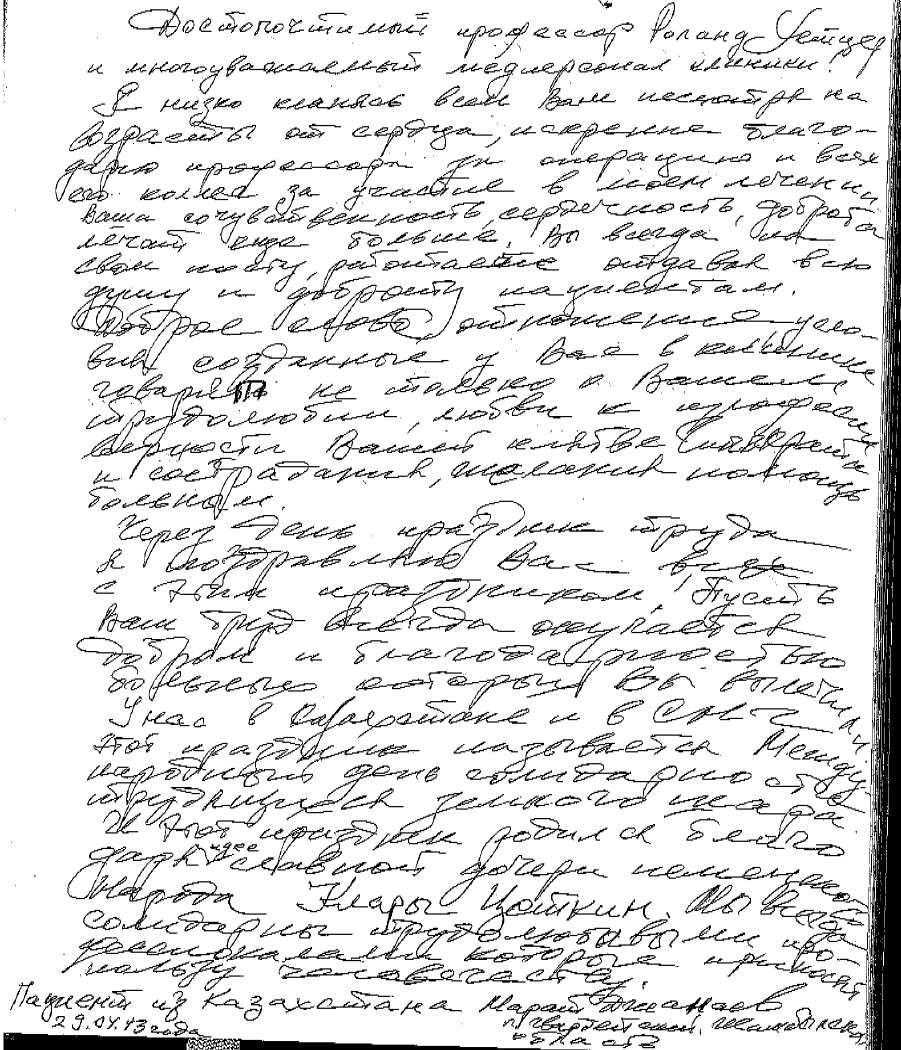 Достопочтимый профессор Роланд Уетцер
и многоуважаемый медперсонал клиники!
Я низко кланяюсь всем Вам несмотря на
возраст от сердца, искренне благо-
дарю профессора за операцию и всех
его коллег за участие в моем лечении
Ваша сочувственность, сердечность, доброта
лечат еще больше. Вы всегда на
своем посту, работаете отдавая всю
душу и доброту пациентам.
Доброе слово, отношения усло-
вия созданные у Вас в клинике
говорят не только о Вашем
трудолюбии, любви к профессии
верности Вашей клятве Гиппократа
и сострадания, желания помощь
больным.
Через день праздник труда
я поздравляю Вас всех
с этим праздником. Пусть
Ваш труд всегда окупается
добром и благодарностью
больных которых Вы вылечили.
У нас в Казахстане и в СНГ
этот праздник называется Между-
народный день солидарности
трудящихся земного шара.
И этот праздник родился благо
даря идее славной дочери немецкого
народа Клары Цеткин. Мы всегда
солидарны трудолюбивыми про-
фессионалами которые приносят
пользу человечеству.
Пациент из Казахстана Марат Джанаев
29.04.13 года
область